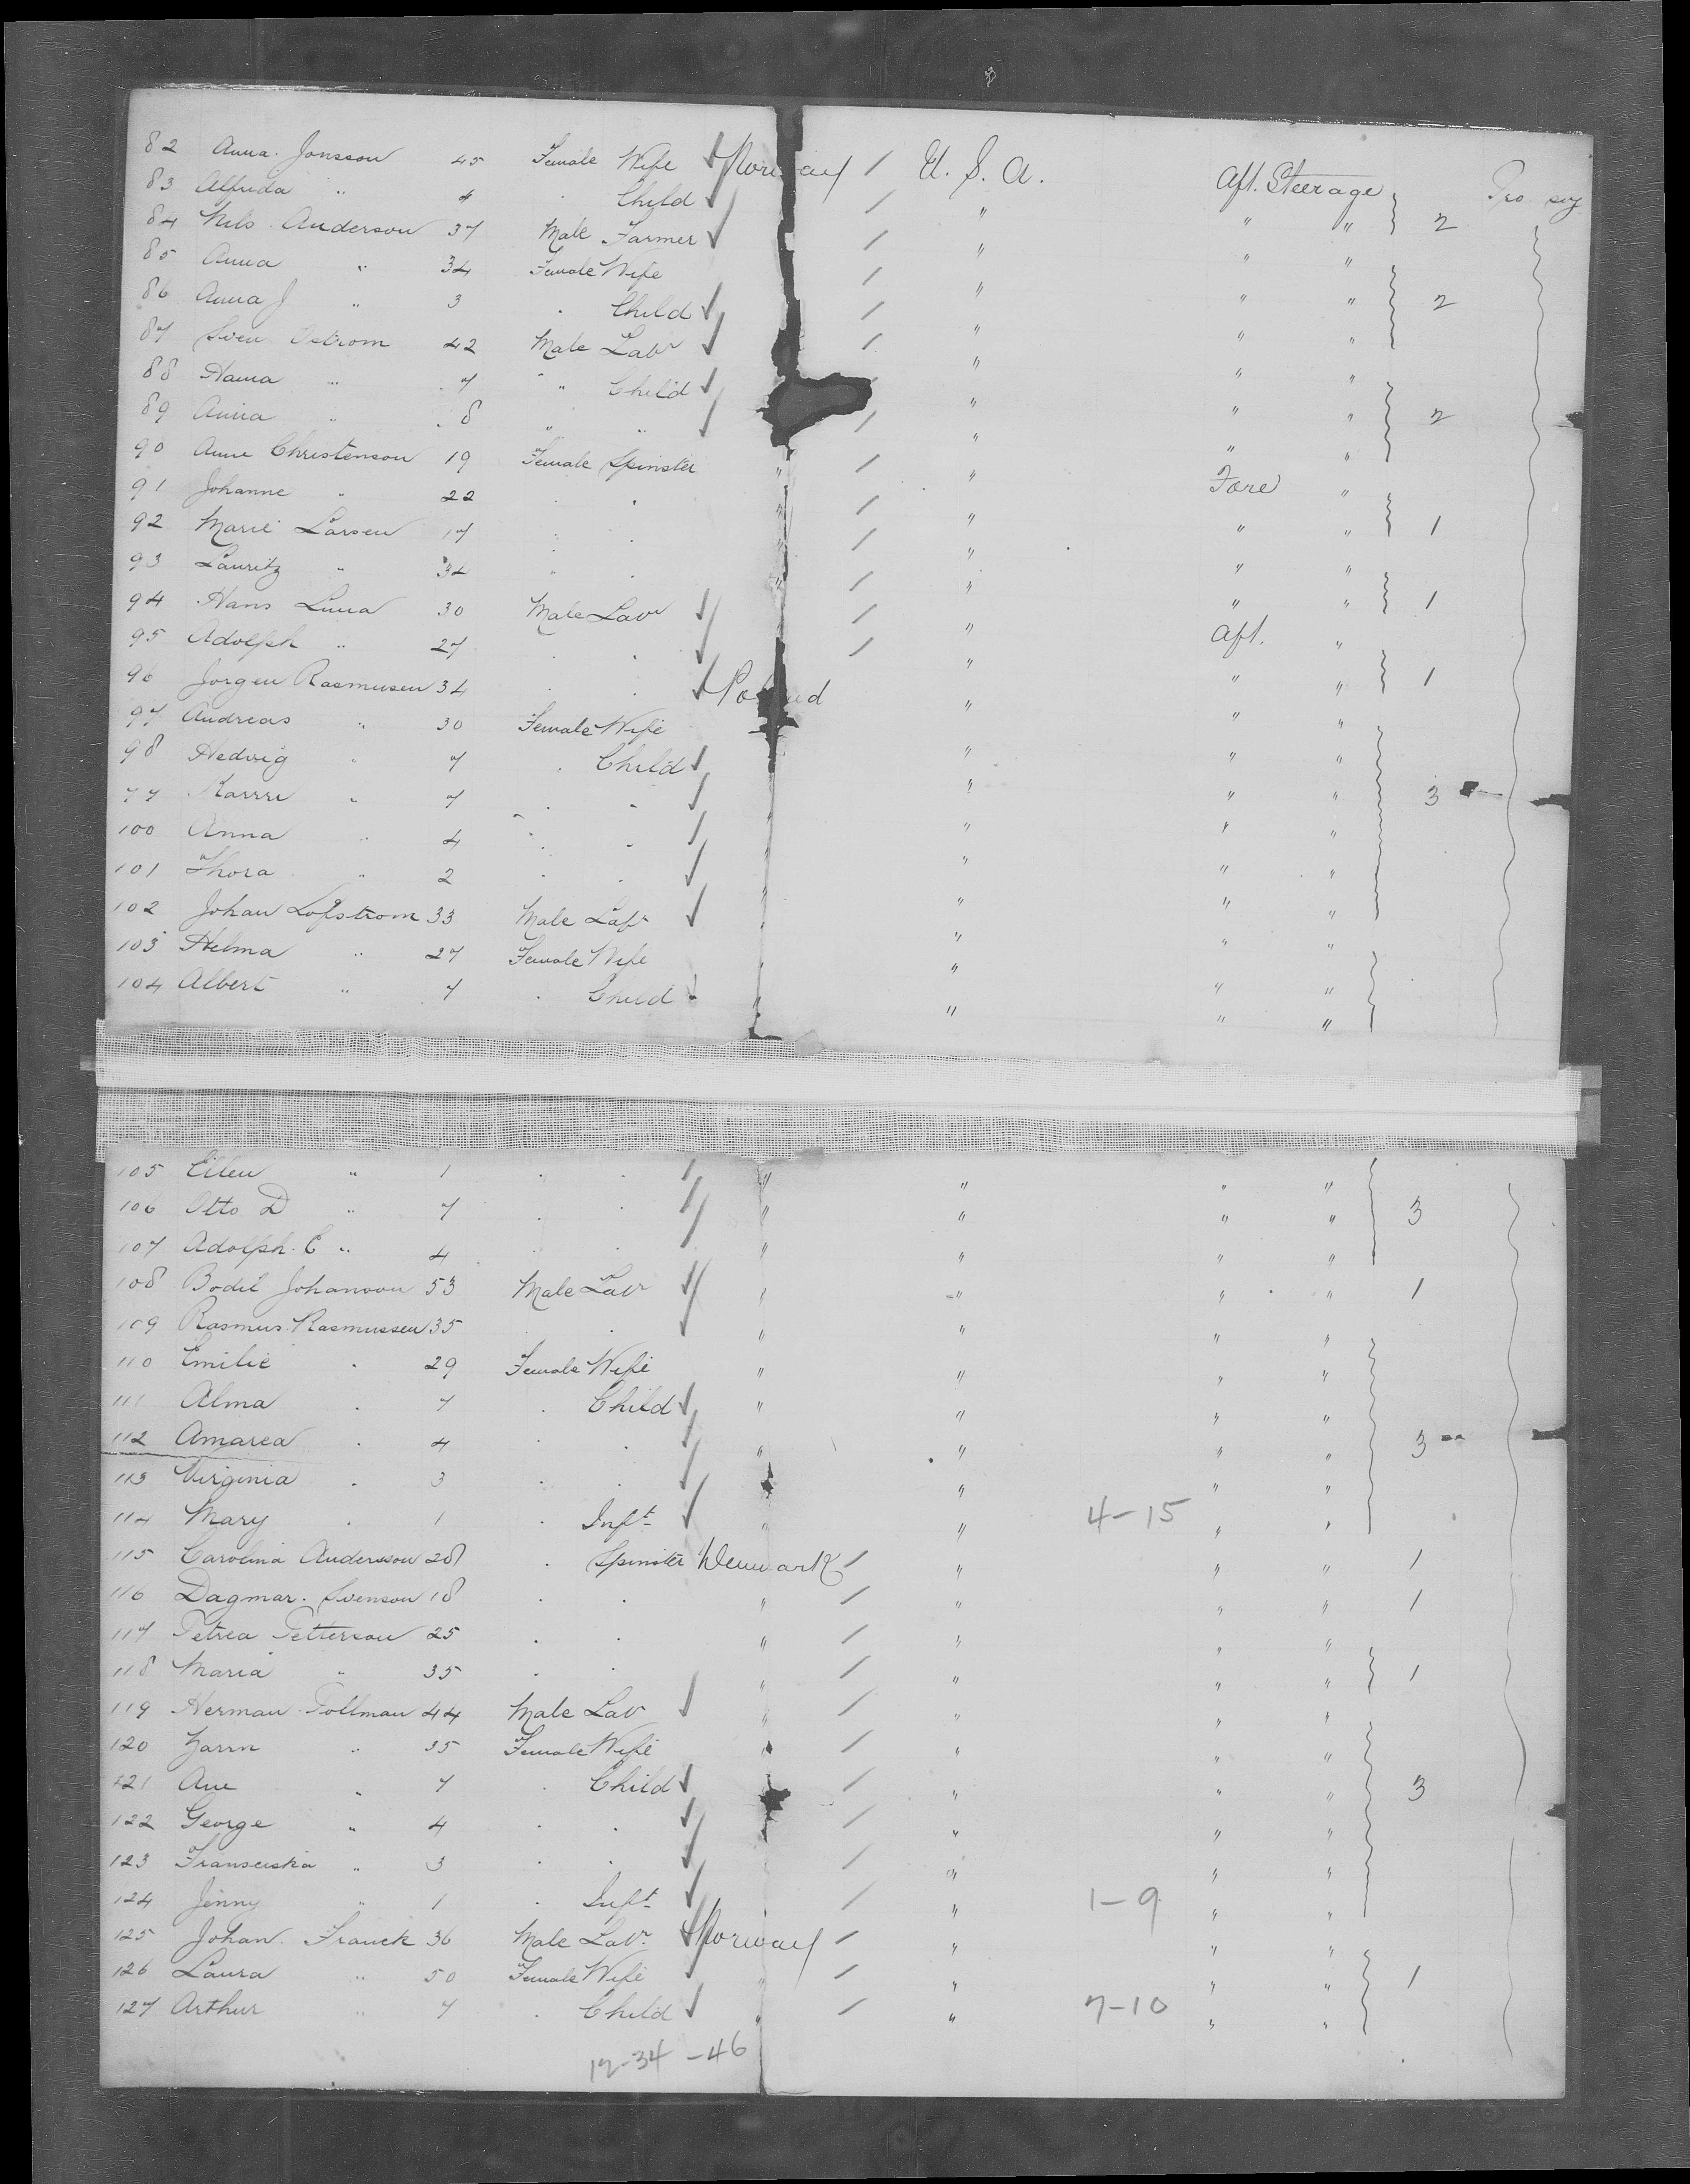 82 Anna Jonsson 45 Female Wife Norway / U. S. A. Aft. Steerage Pro
83 Alfrida " 4 . Child / " " " 2
84 Nils Anderson 37 Male Farmer / " " "
85 Anna " 34 Female Wife / " " "
86 Anna J " 3 . Child / " " " 2
87 Sven Ostrom 42 Male Labr / " " "
88 Hanna " 7 " Child " " "
89 Anna " 8 " " / " " " 2
90 Anne Christenson 19 Female Spinster " / " Fore "
91 Johanne " 22 . . " / " " " 1
92 Marie Larsen 17 . . " / " " "
93 Lauritz " 34 . . " / " " " 1
94 Hans Luua 30 Male Labr / " Aft. "
95 Adolph " 27 . . / " " " 1
96 Jorgen Rasmusen 34 . . " " "
97 Andreas " 30 Female Wife " " "
98 Hedvig " 7 . Child " " " 3
Karrri " 7 . . " " " "
100 Anna " 4 . . " " " "
101 Thora " 2 . . " " " "
102 Johan Lofstrom 33 Male Labr " " " "
103 Helma " 27 Female Wife " " " "
104 Albert " 7 . Child " " " "
105 Ellen " 1 . . " " " "
106 Otto D " 7 . . " " " " 3
107 Adolph C " 4 . . " " " "
108 Bodil 53 Male Labr " " " " 1
109 Rasmus Rasmussen 35 . . " " " "
110 Emilie . 29 Female Wife " " " "
111 Alma . 7 . Child " " " "
112 Amarea . 4 . . " " " " 3
113 Virginia . 3 . . " " "
114 Mary . 1 . Inft " " 4-15 " "
115 Carolina Andersson 28 . Spinster Denmark / " " " 1
116 Dagmar Svenson 18 . . " / " " " 1
117 Petrea Petterson 25 . . " / " " "
118 Maria " 35 . . " / " " " 1
119 Herman Tollman 44 Male Lab " / " " "
120 " 35 Female Wife / " " "
121 Ane " 7 . Child / " " " 3
122 George " 4 . . / " " "
123 Franseiska " 3 . . / " " "
124 Jenny " 1 . Inft / " 1-9 " "
125 Johan Franck 36 Male Labr Norway / " " "
126 Laura " 50 Female Wife " / " " " 1
127 Arthur " 7 . Child " / " 7-10 " "
12-34-46